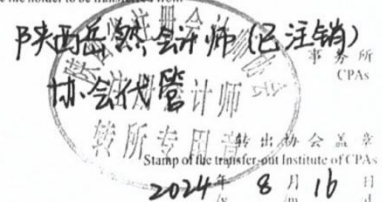 the holder to be transferred from
陕西岳然会计师(已注销)
事务所
CPAs
协会代管
注册会计师
转所专用章
转出协会盖章
Stamp of the transfer-out Institute of CPAs
2024年8月16日
/y /m /d